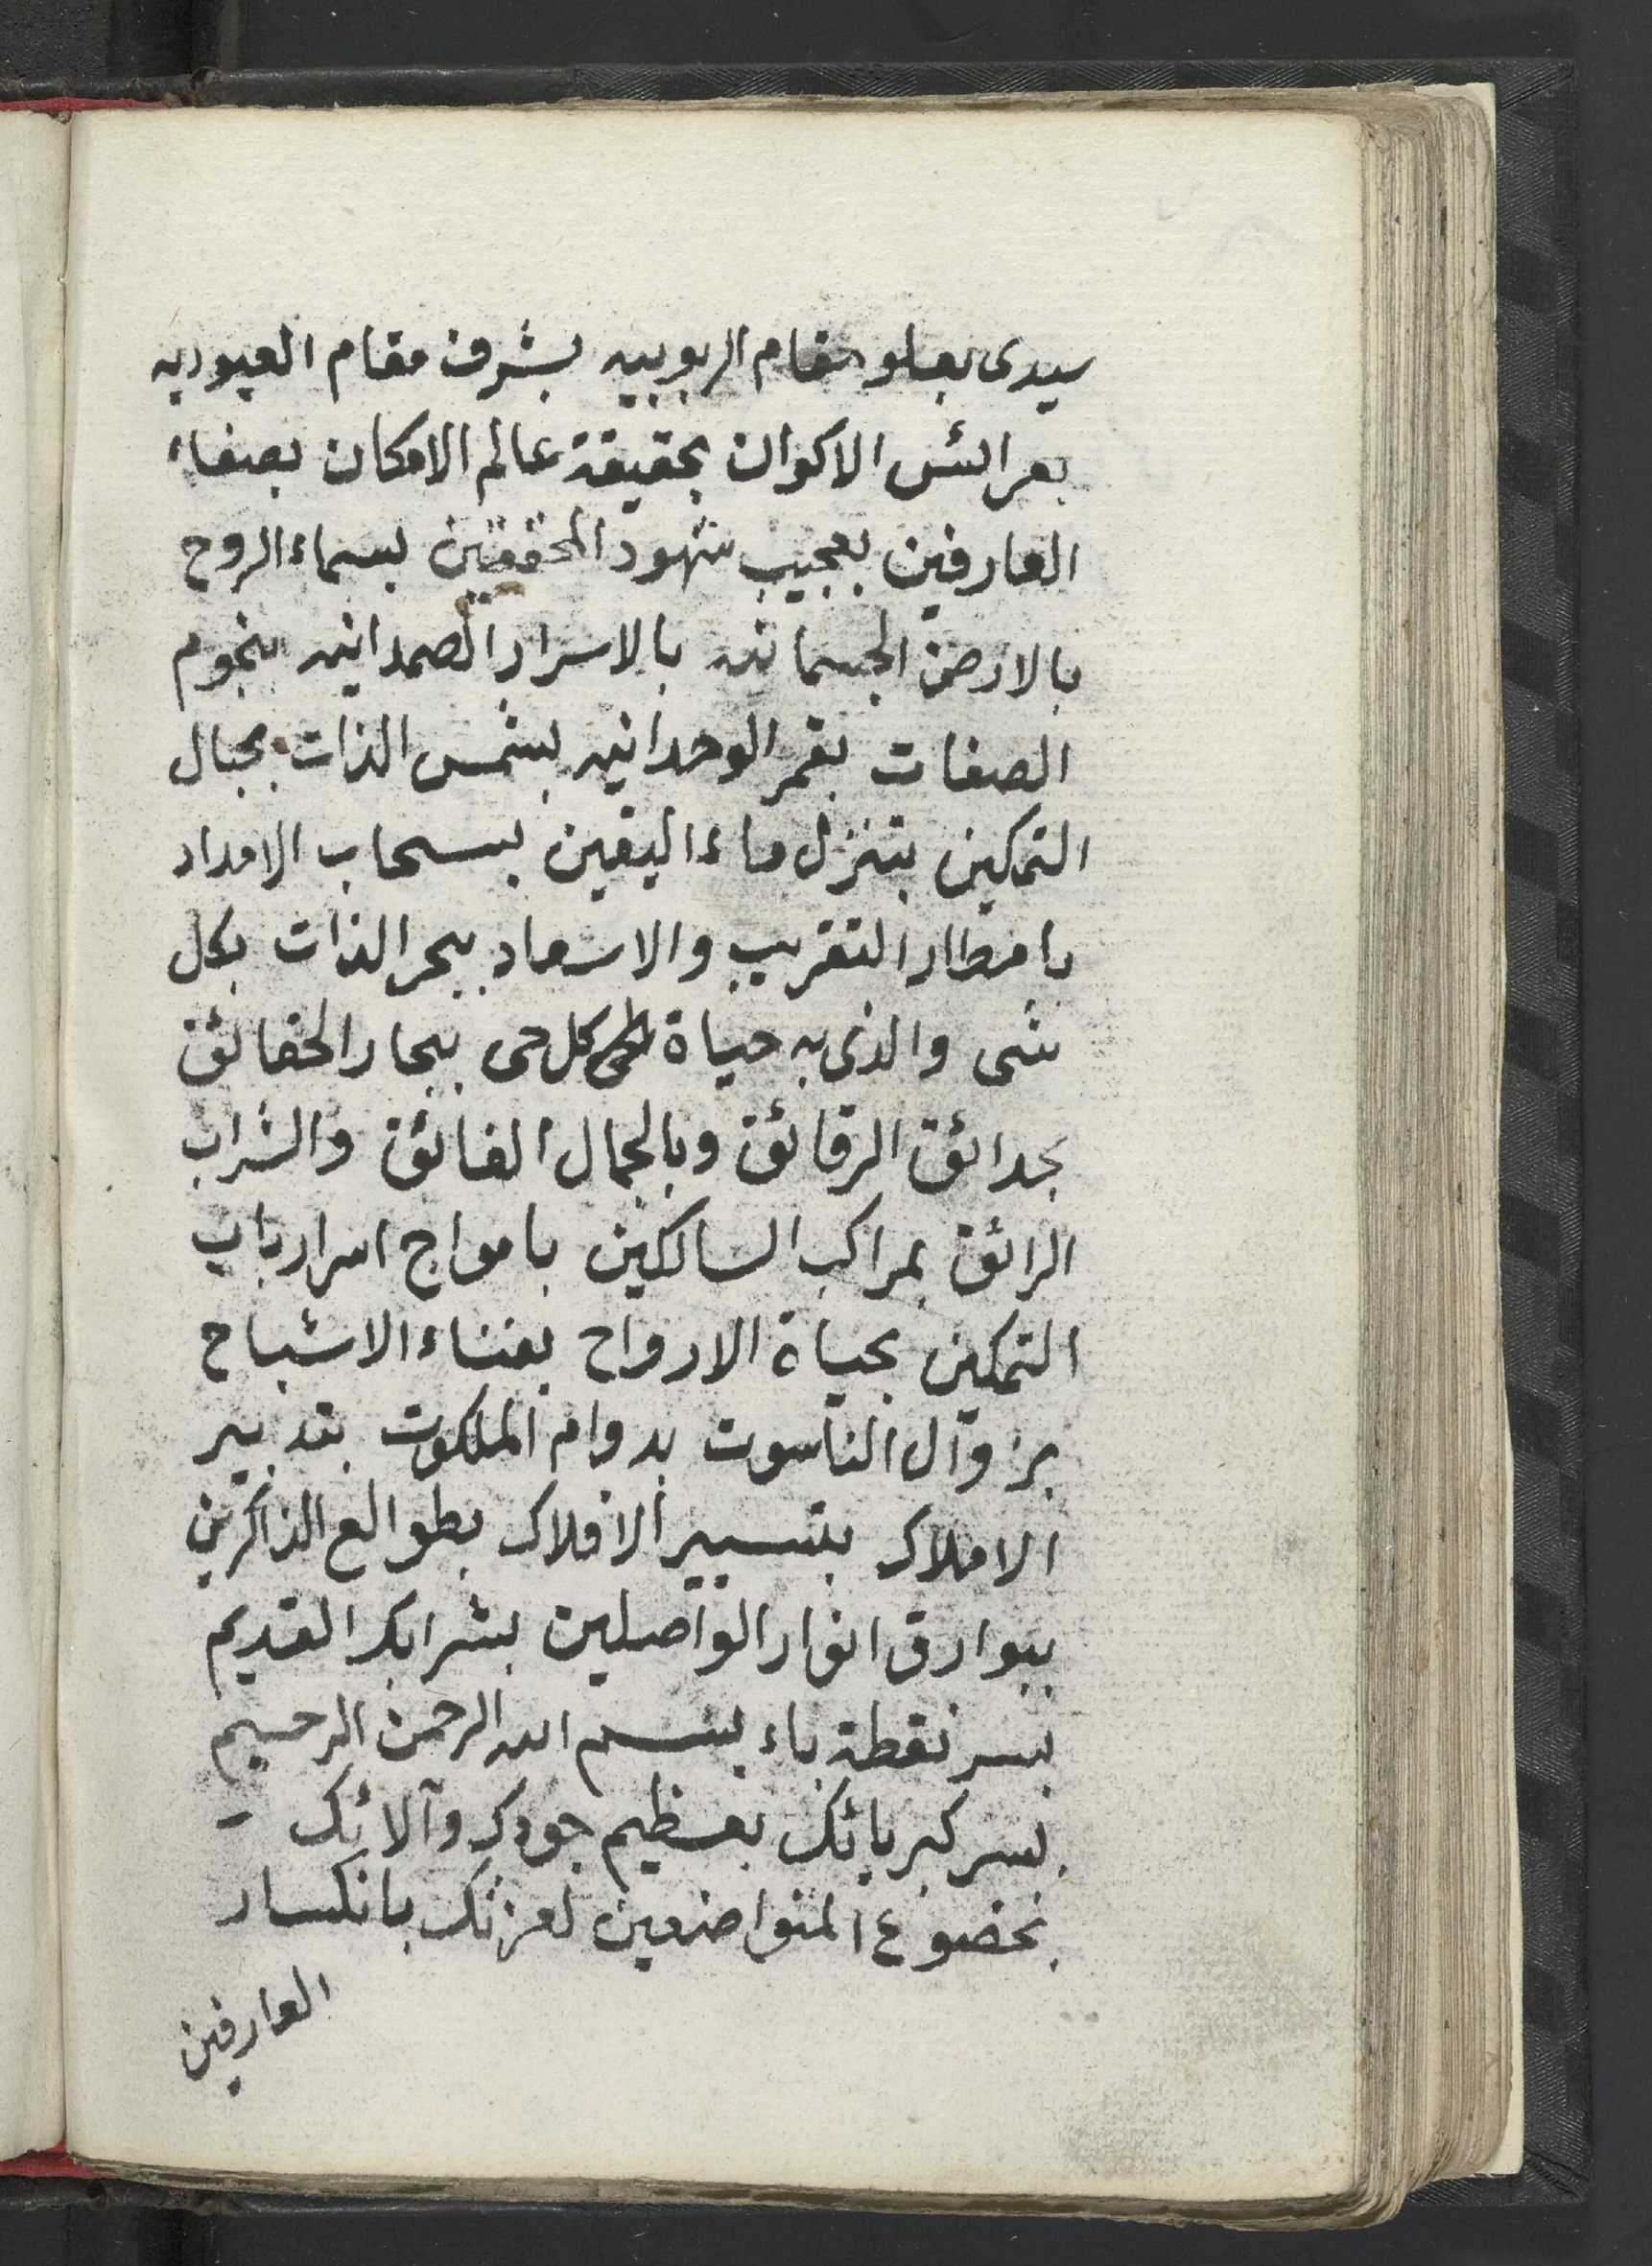 سيدى بعلو مقام الربوبيه بشرف مقام العبوديه
بعرائس الاكوان بحقيقة عالم الامكان بصفاء
العارفين بعجيب شهود المحققين بسماء الروح
بالارض الجسمانيه بالاسرار الصمدانيه بنجوم
الصفات بقمر الوحدانيه بشمس الذات بجبال
التمكين بتنزل ماء اليقين بسحاب الامداد
بامطار التقريب والاسعاد ببحر الذات بكل
شى والذى به حياة كل حى ببحار الحقائق
بحدائق الرقائق وبالجمال الفائق والشراب
الرائق بمراكب السالكين بامواج اسرار باب
التمكين بحياة الارواح بفناء الاشباح
بزوال الناسوت بدوام الملكوت بتدبير
الاملاك بتسيير الافلاك بطوالع الذاكرين
ببوارق انوار الواصلين بشرابك القديم
بسر نقطة باء بسم الله الرحمن الرحيم
بسر كبريائك بعظيم جودك وآلائك
بخضوع المتواضعين لعزتك بانكسار
العارفين